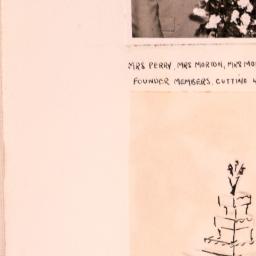 MRS PERRY, MRS MORTON, MRS MO
FOUNDER MEMBERS, CUTTING